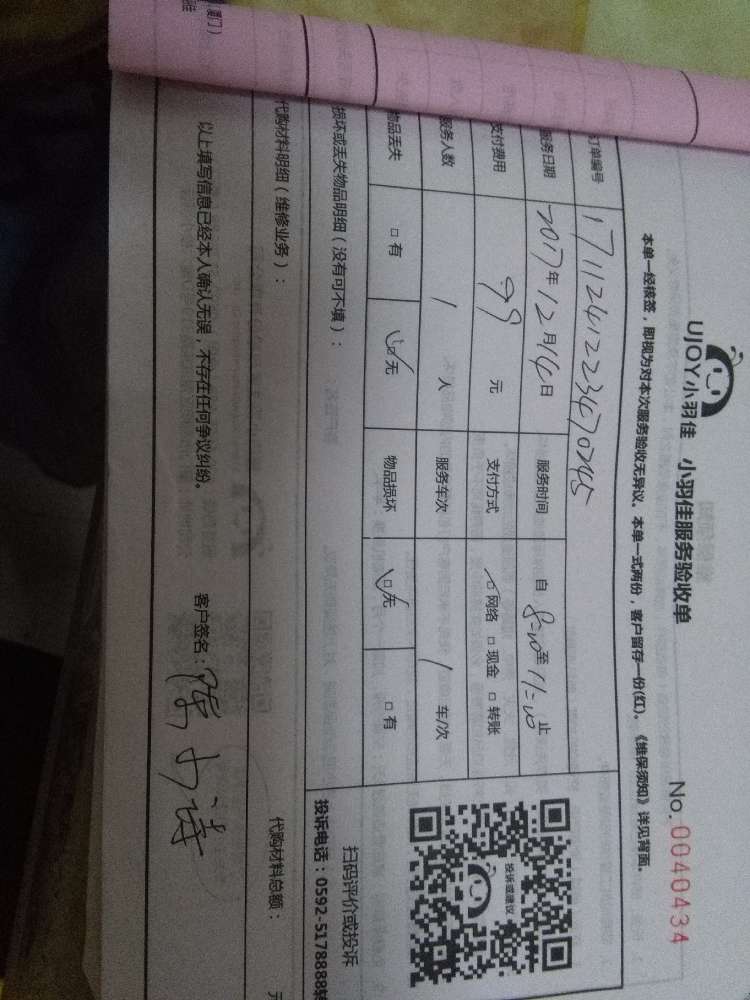 UJOY小羽佳 小羽佳服务验收单
No. 0040434
本单一经核签，即视为对本次服务验收无异议。本单一式两份，客户留存一份(红)。《维保须知》详见背面。
订单编号
服务日期 2017年12月14日 服务时间 自8:00至11:00止
支付费用 99元 支付方式 □网络 □现金 □转账
服务人数 1人 服务车次 1车/次
物品丢失 □有 □无 物品损坏 □无 □有
投诉或建议
扫码评价或投诉
投诉电话：0592-5178888转
损坏或丢失物品明细（没有可不填）：
代购材料明细（维修业务）： 代购材料总额： 元
以上填写信息已经本人确认无误，不存在任何争议纠纷。 客户签名：
厦门）